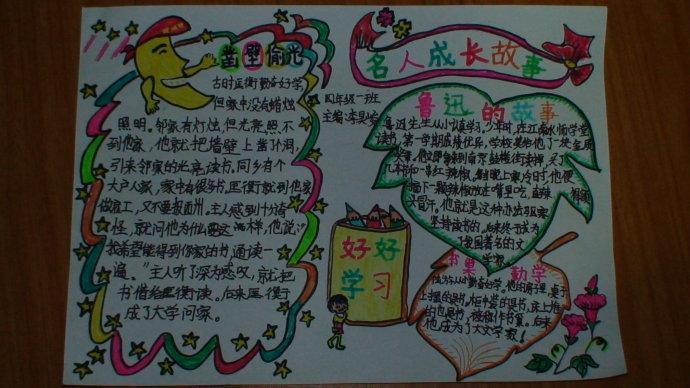 凿壁偷光
古时匡衡勤奋好学,
但家中没有蜡烛
照明。邻家有灯烛,但光亮照不
到他家,他就把墙壁上凿个洞,
引来邻家的光亮读书。同乡有个
大户人家,家中有很多书。匡衡就到他家
做雇工,又不要报酬。主人感到十分奇
怪,就问他为什么要这样,他说:“
我希望能得到你家的书,通读一
遍。”主人听了深为感叹,就把
书借给匡衡读。后来匡衡
成了大学问家。
名人成长故事
四年级一班
主编:李昊
鲁迅的故事
鲁迅先生从小认真学习。少年时,在江南水师学堂
读书,第一学期成绩优异,学校奖给他了一块金质
奖章。他立即拿到南京鼓楼街头卖掉,买了
几本书和一串红辣椒。每当晚上寒冷时,他便
摘下一颗辣椒,放在嘴里吃,直辣
冒汗。他就是这种办法驱寒
坚持读书的。后来终于成为
我国著名的文
学家
好好
学习
书巢 勤学
陆游从小勤奋好学。他的房子里,桌子
上摆的是书,柜中装的是书,床上堆
的也是书,被称作书巢。后来
他成为了大文学家!